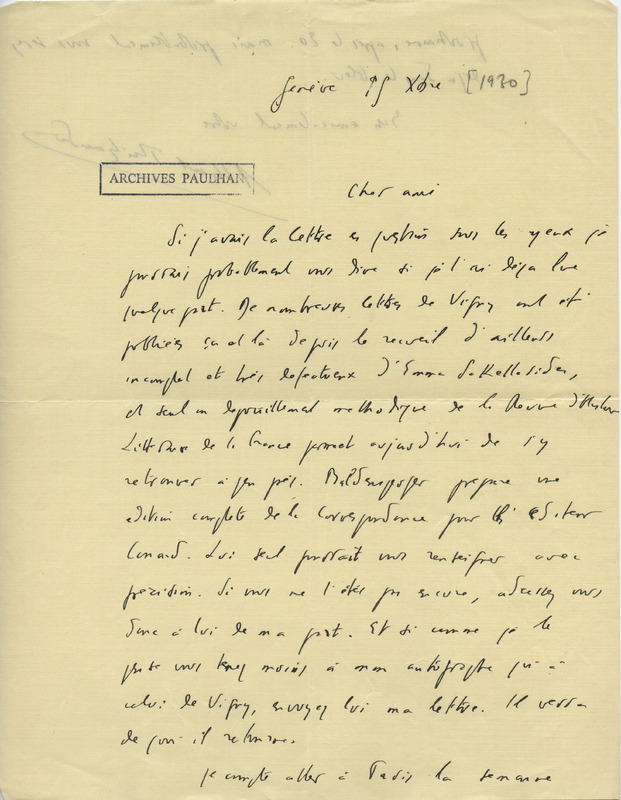 Genève 15 Xbre [1930]
ARCHIVES PAULHAN
Cher ami
Si j'avais la lettre en question sous les yeux je
pourrais probablement vous dire si je l'ai déjà lue
quelque part. De nombreuses lettres de Vigny ont été
publiées ça et là depuis le recueil d'ailleurs
incomplet et très défectueux d'Emma Sakellaridès,
et seul un dépouillement méthodique de la Revue d'Histoire
Littéraire de la France permet aujourd'hui de s'y
retrouver à peu près. Baldensperger prépare une
édition complète de la Correspondance pour l'éditeur
Conard. Lui seul pourrait vous renseigner avec
précision. Si vous ne l'êtes pas encore, adressez vous
donc à lui de ma part. Et si comme je le
pense vous tenez moins à mon autographe qu'à
celui de Vigny, envoyez lui ma lettre. Il verra
de quoi il retourne.
Je compte aller à Paris la semaine